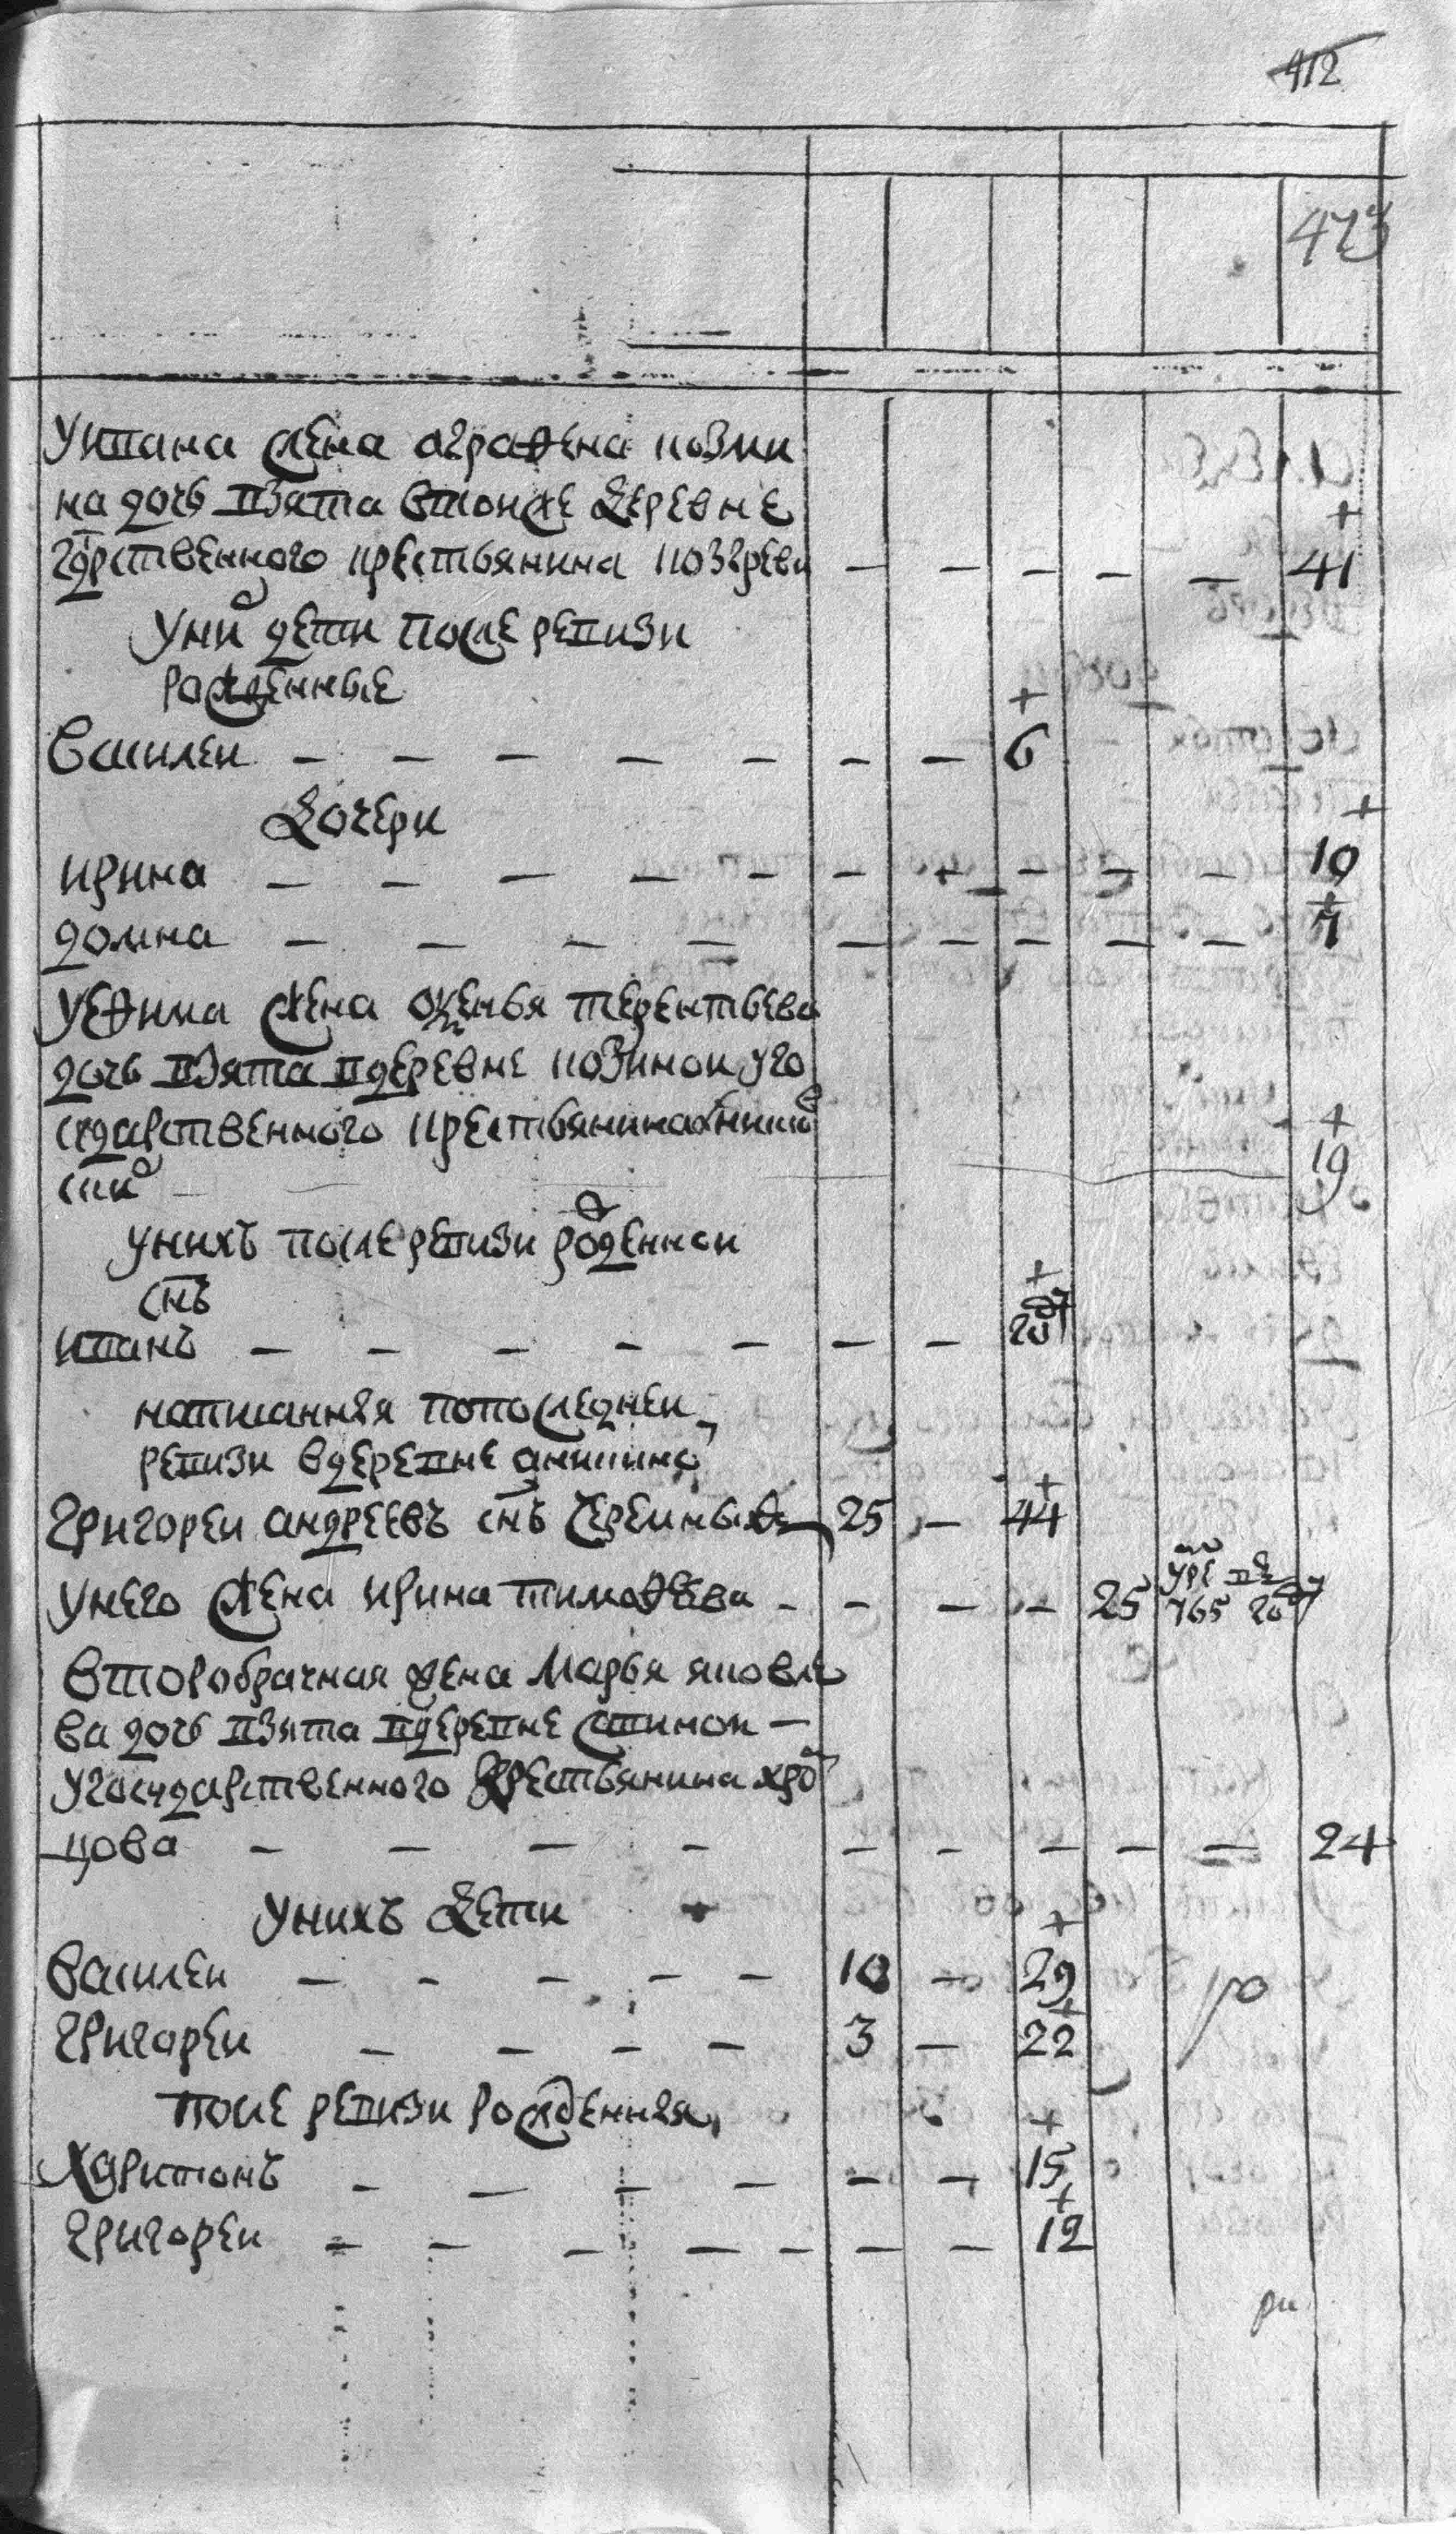 412
423
Уивана жена аграфена козми
на дочь взята втойже деревне
гдрственного крестьянина козгреви — — — — — 41
Уних дети после ревизи
рожденные
Василеи — — — — — — — 6
Дочери
ирина — — — — — — — — — — 10
домна — — — — — — — — — 7
Уефима жена оксенья терентьева
дочь взята вдеревне козинои уго
сударственного крестьянина
19
Унихъ после ревизи рожденнои
снъ
иванъ — — — — — — — 20
написанныя попоследнеи
ревизи вдеревне аникино
Григореи андреевъ снъ черемных 25 — 44
Унего жена ирина тимофеева — — — — 25 умре в 765 году
Второбрачная жена Марья яковле
ва дочь взята вдеревне савинои —
Угосударственного крестьянина хро
мцова — — — — — — — — — 24
Унихъ Дети
Василеи — — — — — 10 — 29
Григореи — — — — 3 — 22
После ревизи рожденныя
Харитонъ — — — — — — 15
Григореи — — — — — — — 12